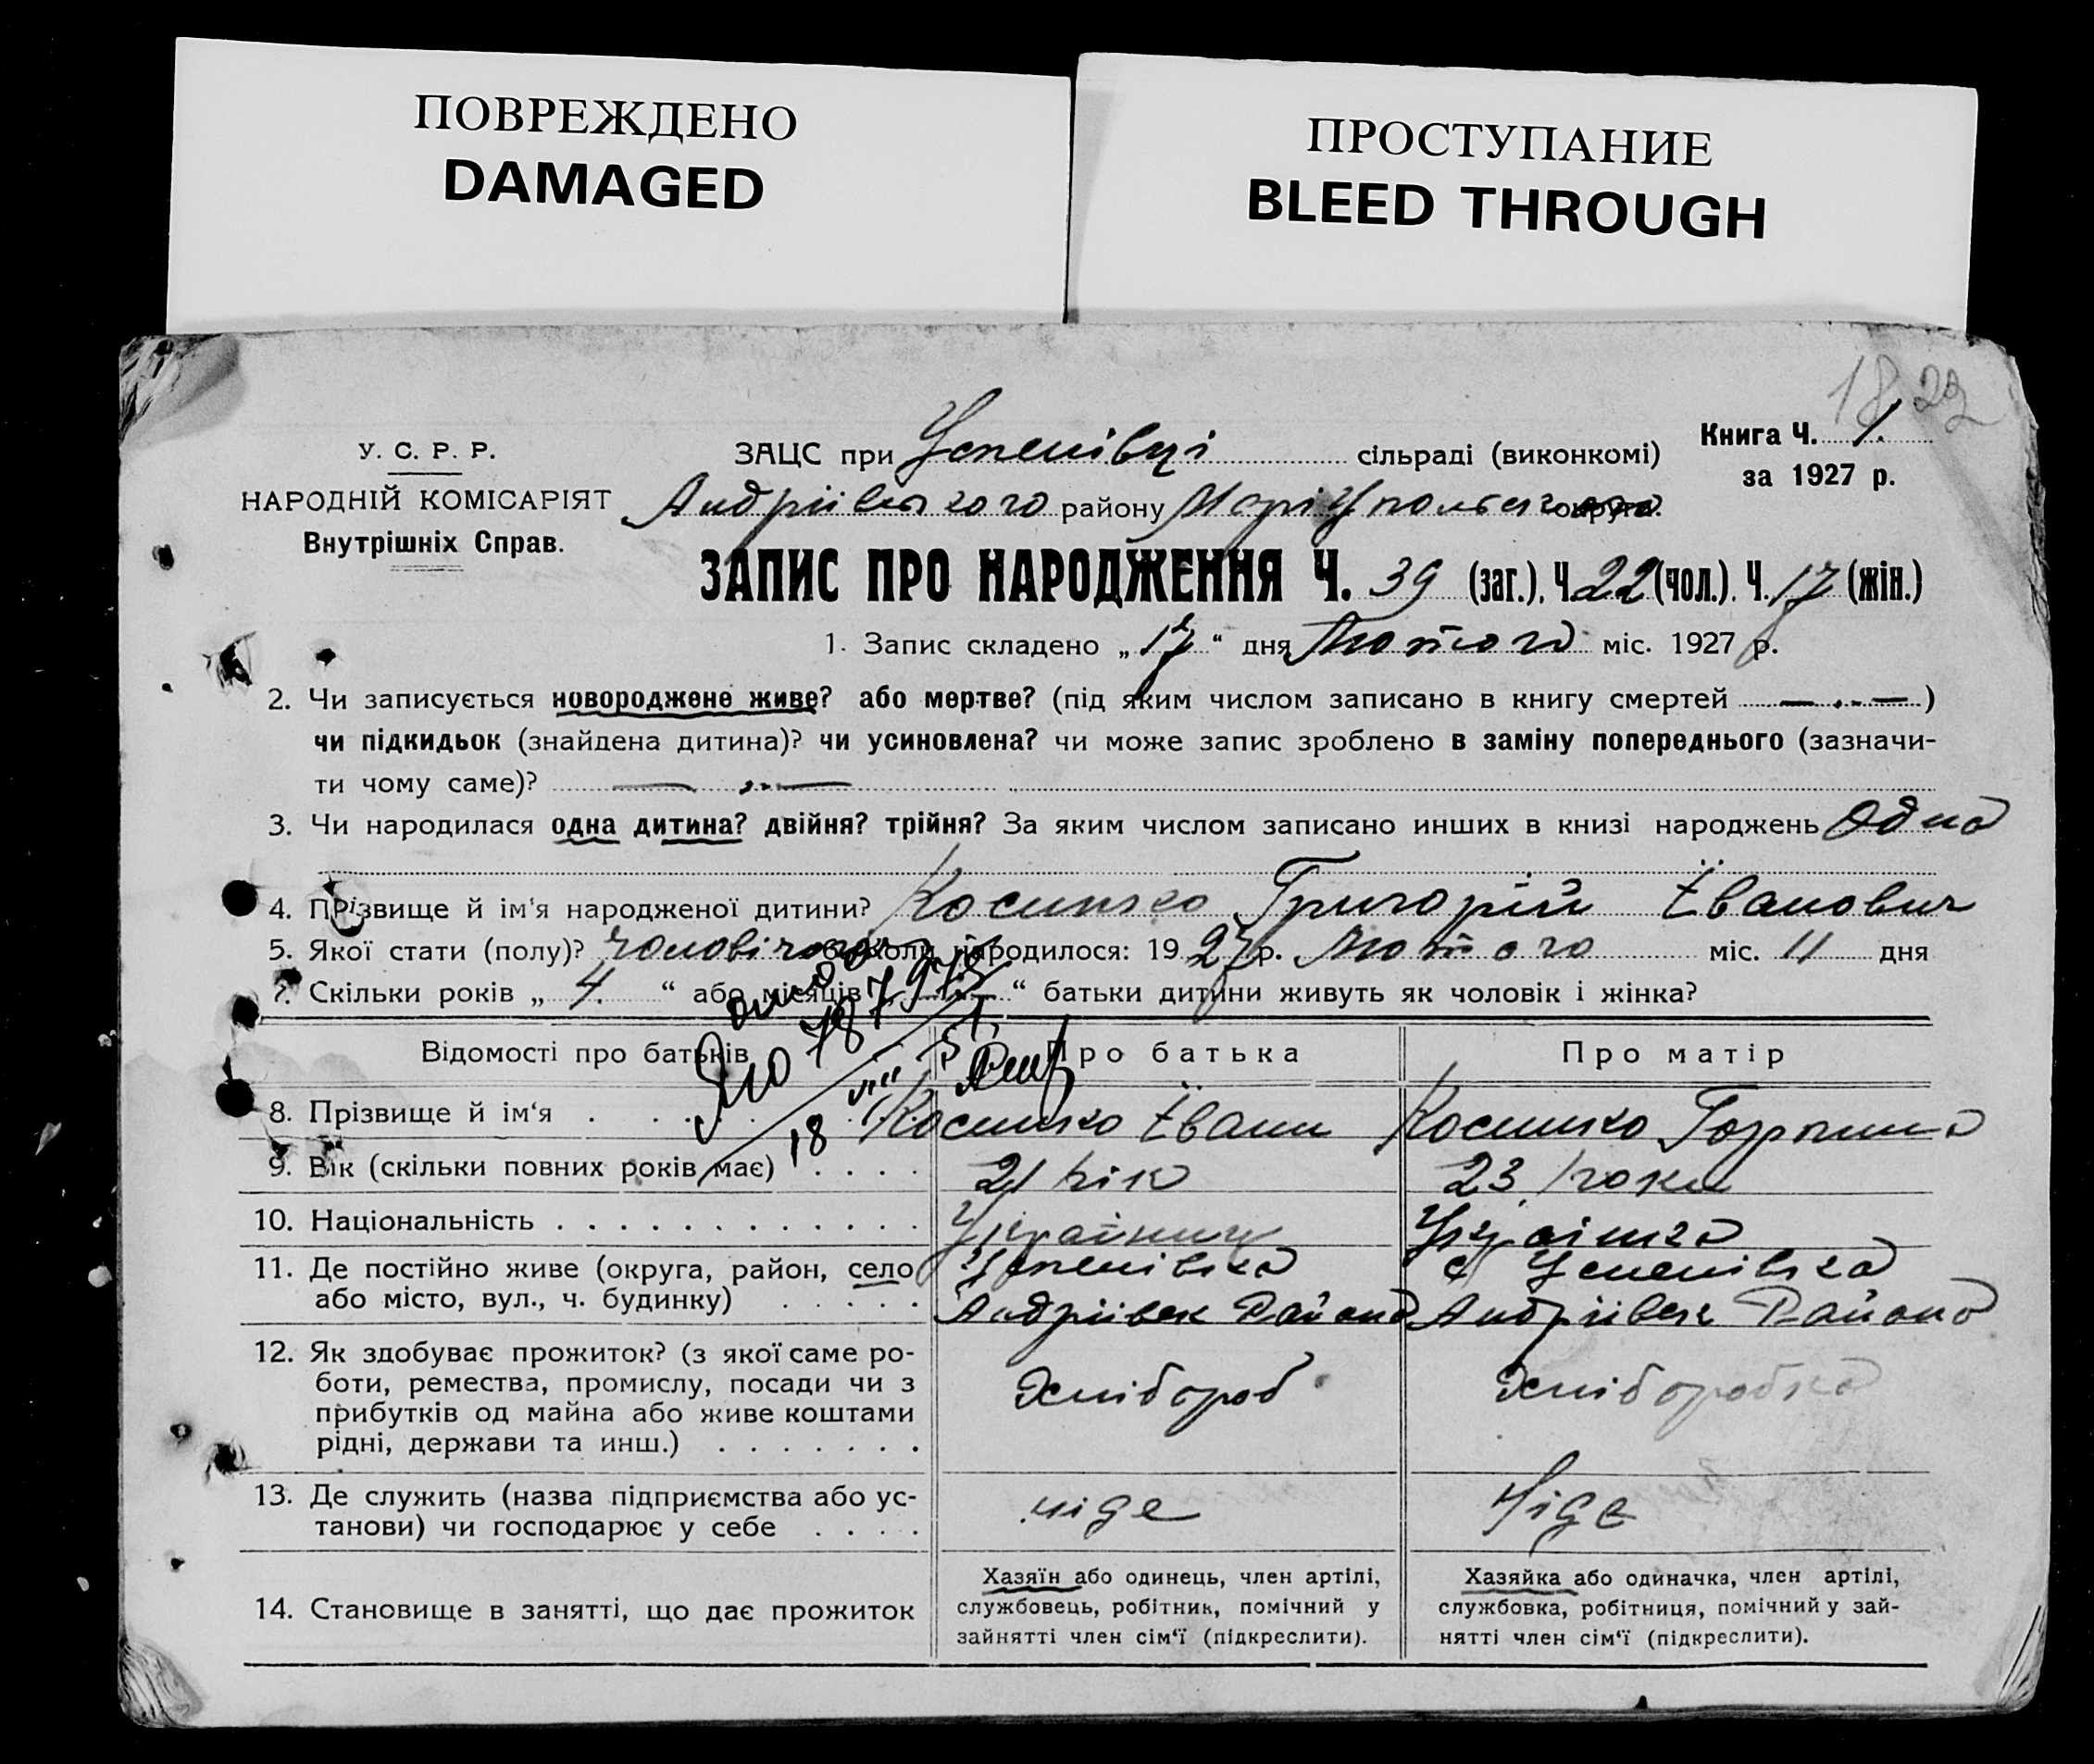 ПОВРЕЖДЕНО
DAMAGED
ПРОСТУПАНИЕ
BLEED THROUGH
У. С. Р. Р.
НАРОДНІЙ КОМІСАРІЯТ
Внутрішніх Справ.
ЗАЦС при Успенівці сільраді (виконкомі)
Андріївського району Маріупольського округа.
Книга Ч. 1.
за 1927 р.
ЗАПИС ПРО НАРОДЖЕННЯ Ч. 39 (заг.), Ч. 22 (чол.). Ч. 17 (жін.)
1. Запис складено „17“ дня Лютого міс. 1927 р.
2. Чи записується новороджене живе? або мертве? (під яким числом записано в книгу смертей — „ —)
чи підкидьок (знайдена дитина)? чи усиновлена? чи може запис зроблено в заміну попереднього (зазначи-
ти чому саме)? — „ —
3. Чи народилася одна дитина? двійня? трійня? За яким числом записано инших в книзі народжень Одна
4. Прізвище й ім'я народженої дитини? Косинко Григорій Іванович
5. Якої стати (полу)? чоловічого 6. Коли народилося: 1927 р. Лютого міс. 11 дня
7. Скільки років „ 4. “ або місяців „ “ батьки дитини живуть як чоловік і жінка?
Відомості про батьків
Про батька
Про матір
8. Прізвище й ім'я Косинко Іван Косинко Горпина
9. Вік (скільки повних років має) 21 рік 23 роки
10. Національність Українец Українка
11. Де постійно живе (округа, район, село
або місто, вул., ч. будинку)
Успенівка
Андріївск Района
с Успенівка
Андріївск Района
12. Як здобуває прожиток? (з якої саме ро-
боти, ремества, промислу, посади чи з
прибутків од майна або живе коштами
рідні, держави та инш.)
Хлібороб
Хліборобка
13. Де служить (назва підприємства або ус-
танови) чи господарює у себе
ніде
Ніде
14. Становище в занятті, що дає прожиток
Хазяїн або одинець, член артілі,
службовець, робітник, помічний у
зайнятті член сім'ї (підкреслити).
Хазяйка або одиначка, член артілі,
службовка, робітниця, помічний у зай-
нятті член сім'ї (підкреслити).